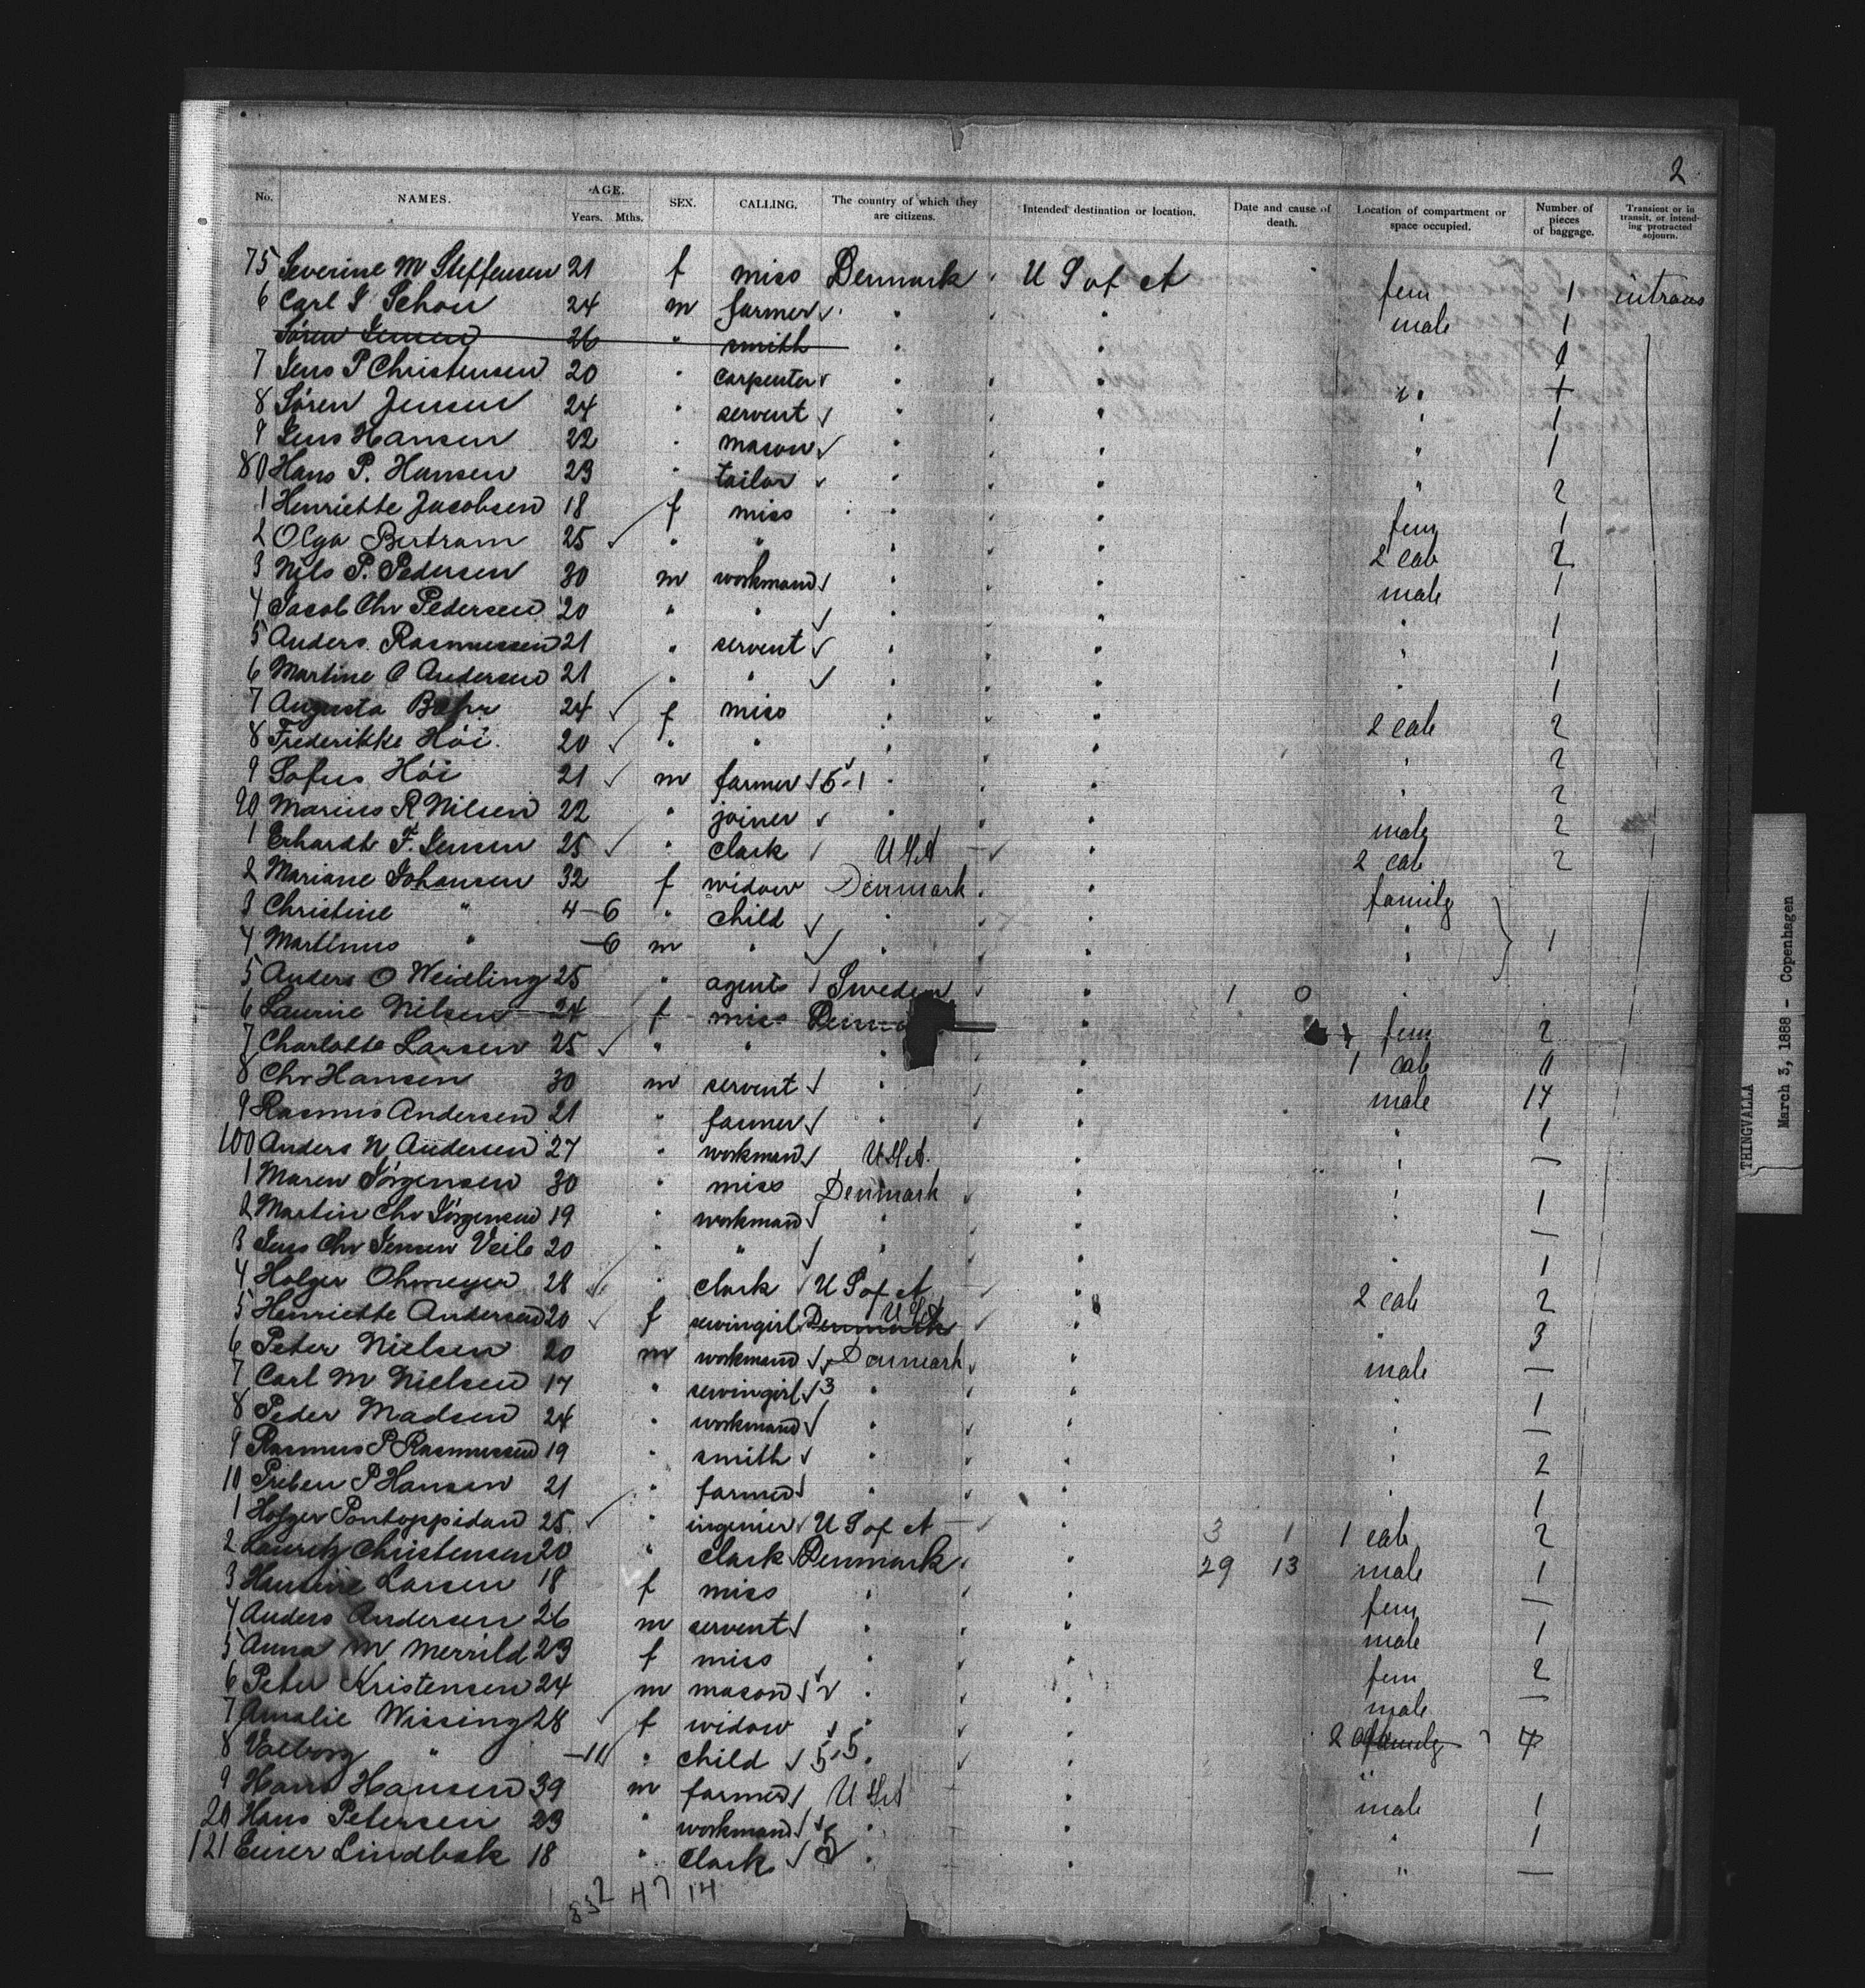 2
No. NAMES. AGE. Years. Mths. SEX. CALLING. The country of which they are citizens. Intended destination or location. Date and cause of death. Location of compartment or space occupied. Number of pieces of baggage. Transient or in transit, or intending protracted sojourn.
75 Severine M Steffensen 21 f miss Denmark U S of A fem 1 intrans
6 Carl J Schou 24 m farmer " " male 1
Sören Jensen 26 " smith " " 1
7 Jens P Christensen 20 " carpenter " " " 1
8 Sören Jensen 24 " servent " " " 1
9 Jens Hansen 22 " mason " " " 1
80 Hans P. Hansen 23 " tailor " " " 2
1 Henriette Jacobsen 18 f miss " " fem 1
2 Olga Bertram 25 " " " " 2 cab 2
3 Nils P. Pedersen 30 m workmand " " male 1
4 Jacob Chr Pedersen 20 " " " " " 1
5 Anders Rasmussen 21 " servent " " " 1
6 Martine C Andersen 21 " " " " " 1
7 Augusta 24 f miss " " 2 cab 2
8 Frederikke Höi 20 " " " " " 2
9 Sofus Höi 21 m farmer 5-1 " " " 2
90 Marius R Nilsen 22 " joiner " " male 2
1 Erhardt F. Jensen 25 " clark USA " 2 cab 2
2 Mariane Johansen 32 f widow Denmark " family
3 Christine " 4-6 " child " " "
4 Martinus " -6 m " " " " 1
5 Anders O Weidling 25 " agent Sweden " 1 0 "
6 Laurine Nilsen 24 f miss Denm " fem 2
7 Charlotte Larsen 25 " " " " 1 cab 11
8 Chr Hansen 30 m servent " " male 14
9 Rasmus Andersen 21 " farmer " " " 1
100 Anders N Andersen 27 " workmand USA " " —
1 Maren Jörgensen 30 " miss Denmark " " 1
2 Martin Chr Jörgensen 19 " workmand " " —
3 Jens Chr Jensen Veile 20 " " " " 1
4 Holger Ohmeyer 28 " clark U S of A " 2 cab 2
5 Henriette Andersen 20 f sewingirl Denmark USA " " 3
6 Peter Nielsen 20 m workmand Denmark " male —
7 Carl M Nielsen 17 " sewingirl 3 " " " 1
8 Peder Madsen 24 " workmand " " " —
9 Rasmus P Rasmussen 19 " smith " " " 2
10 Preben P Hansen 21 " farmer " " " 1
1 Holger Pontoppidan 25 " ingenier U S of A " 3 1 1 cab 2
2 Lauritz Christensen 20 " clark Denmark " 29 13 male 1
3 Hansine Larsen 18 f miss " " fem —
4 Anders Andersen 26 m servent " " male 1
5 Anna M Merrild 23 f miss " " fem 2
6 Peter Kristensen 24 m mason 2 " " male —
7 Amalie Wissing 28 f widow " " 2 family 4
8 Valborg " -11 " child 5-5 " " "
9 Hans Hansen 39 m farmer USA " male 1
20 Hans Petersen 23 " workmand " " " 1
121 Einer Lindbak 18 " clark 5 " " " —
47 14
THINGVALLA
March 3, 1888 - Copenhagen